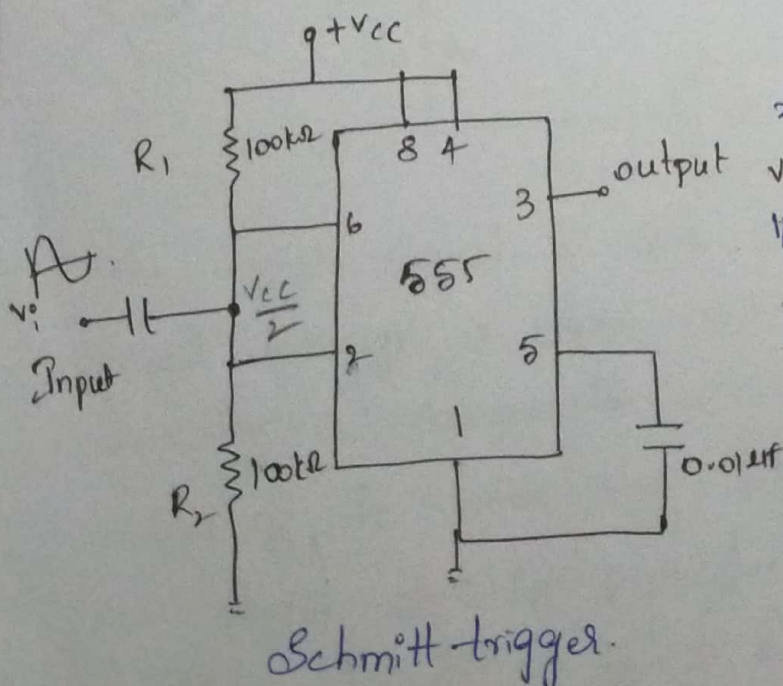 +Vcc
R1
100kΩ
8 4
output
3
6
555
Vi
Vcc/2
2
5
Input
1
100kΩ
R2
0.01µf
Schmitt trigger.